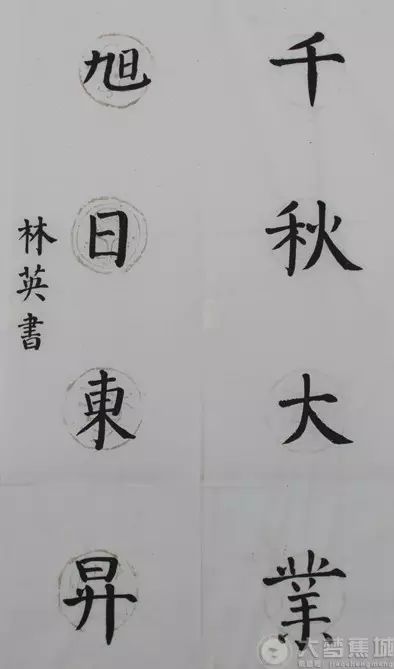 千秋大業
旭日東昇
林英書
大梦蕉城